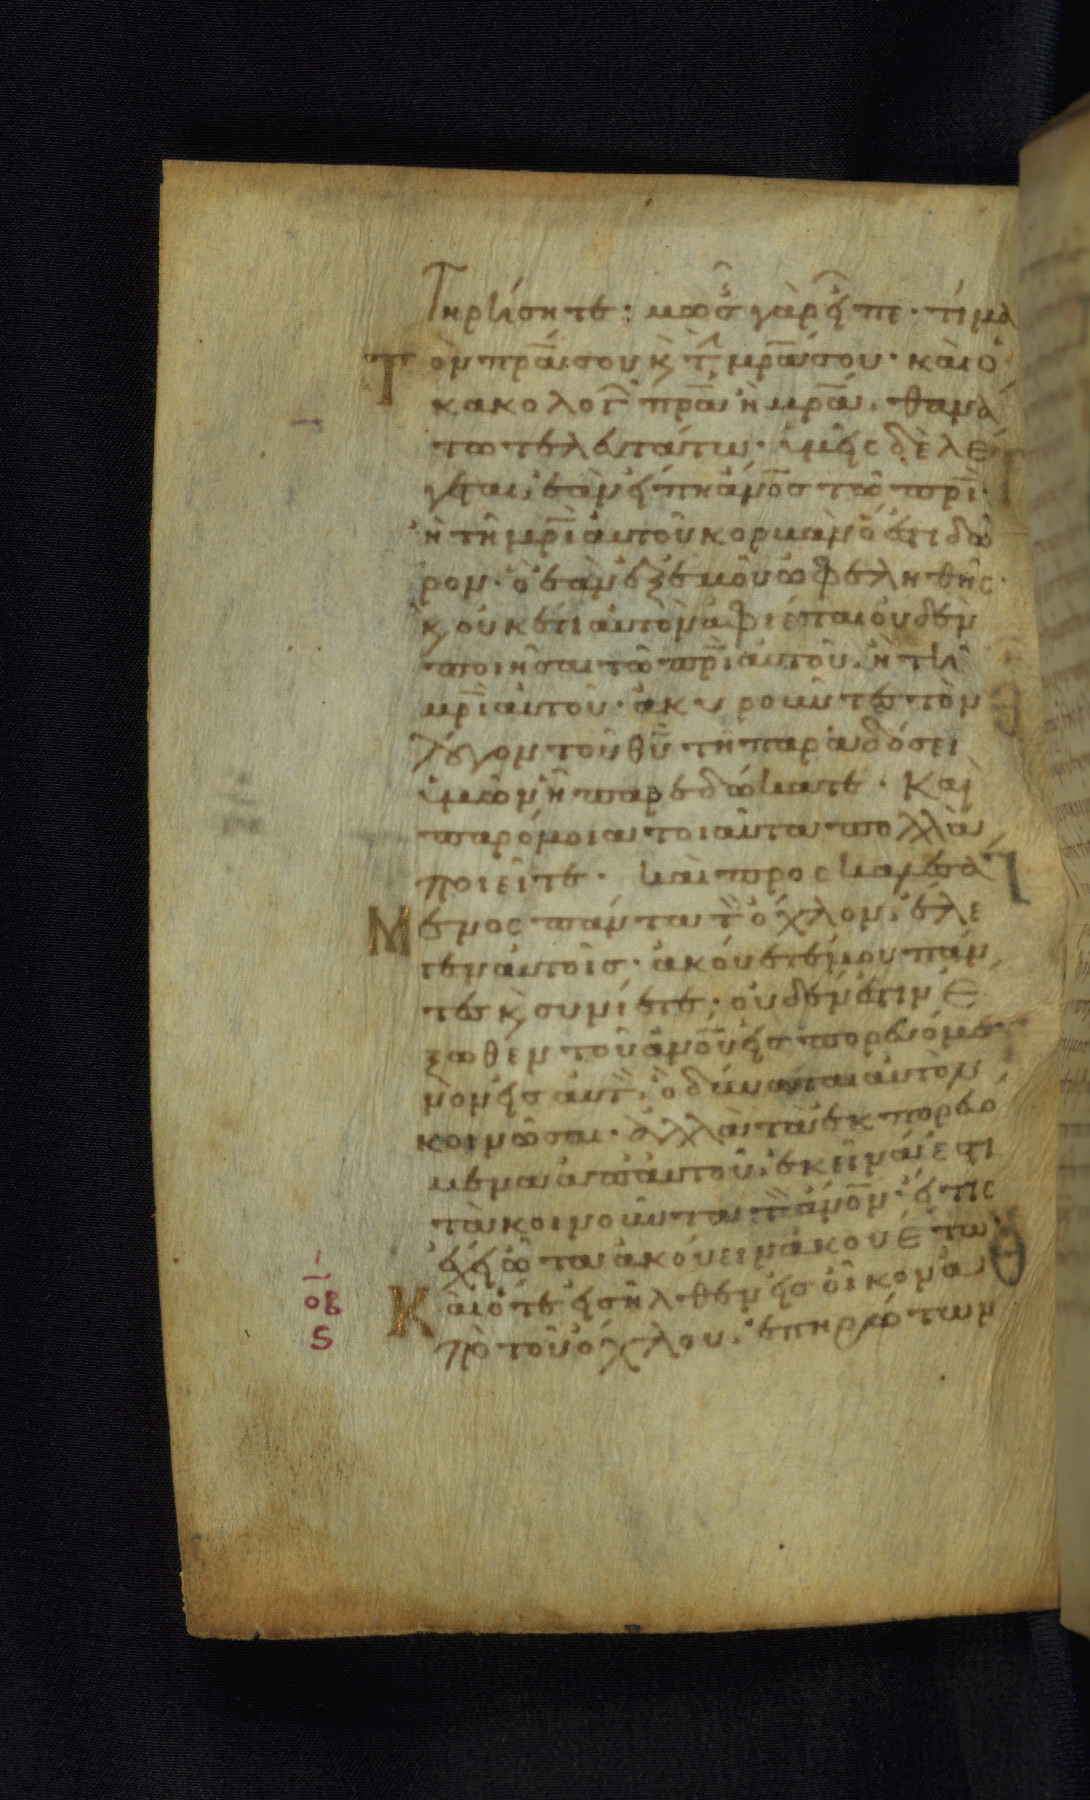 τηρήσητε· μωσῆς γὰρ εἶπε· τίμα
τὸν πρᾱ σου κ̀ τὴν μρᾱ σου· καὶ ὁ
κακολογῶν πρᾱ ἢ μρᾱ, θανά
τω τελευτάτω· ὑμεῖς δὲ λέ
γεται ἐὰν εἴπη ἄνος̄ τῶ πρῑ
ἢ τῆ μρῑ αὐτοῦ κορβὰν ὅ ἐστι δῶ
ρον· ὃ ἐὰν ἐξ ἐμοῦ ὠφεληθῆς·
κ̀ οὐκέτι αὐτὸν ἀφίεται οὐδὲν
ποιῆσαι τῶ πρῑ αὐτοῦ, ἢ τῆ
μρῑ αὐτοῦ· ἀκυροῦντες τὸν
λόγον τοῦ θῡ τῆ παραδόσει
ὑμῶν ἧ παρεδώκατε· Καὶ
παρόμοια τοιαῦτα πολλὰ
ποιεῖτε· καὶ προσκαλεσά
μενος πάντα τὸν ὄχλον, ἔλε
γεν αὐτοῖς· ἀκούετέ μου πάν
τες κ̀ συνίετε· οὐδέν ἐστιν ἔ
ξωθεν τοῦ ἀνοῡ εἰσπορευόμε
νον εἰς αὐτὸν· ὃ δύναται αὐτὸν
κοινῶσαι· ἀλλὰ τὰ ἐκπορευό
μενα ἀπ' αὐτοῦ, ἐκεῖνά ἐστι
τὰ κοινοῦντα τὸν ἄνον̄· εἴ τις
ἔχει ὦτα ἀκούειν ἀκουέτω·
ος
ς
Καὶ ὅτε εἰσῆλθεν εἰς οἶκον ἀ
πὸ τοῦ ὄχλου· ἐπηρώτων